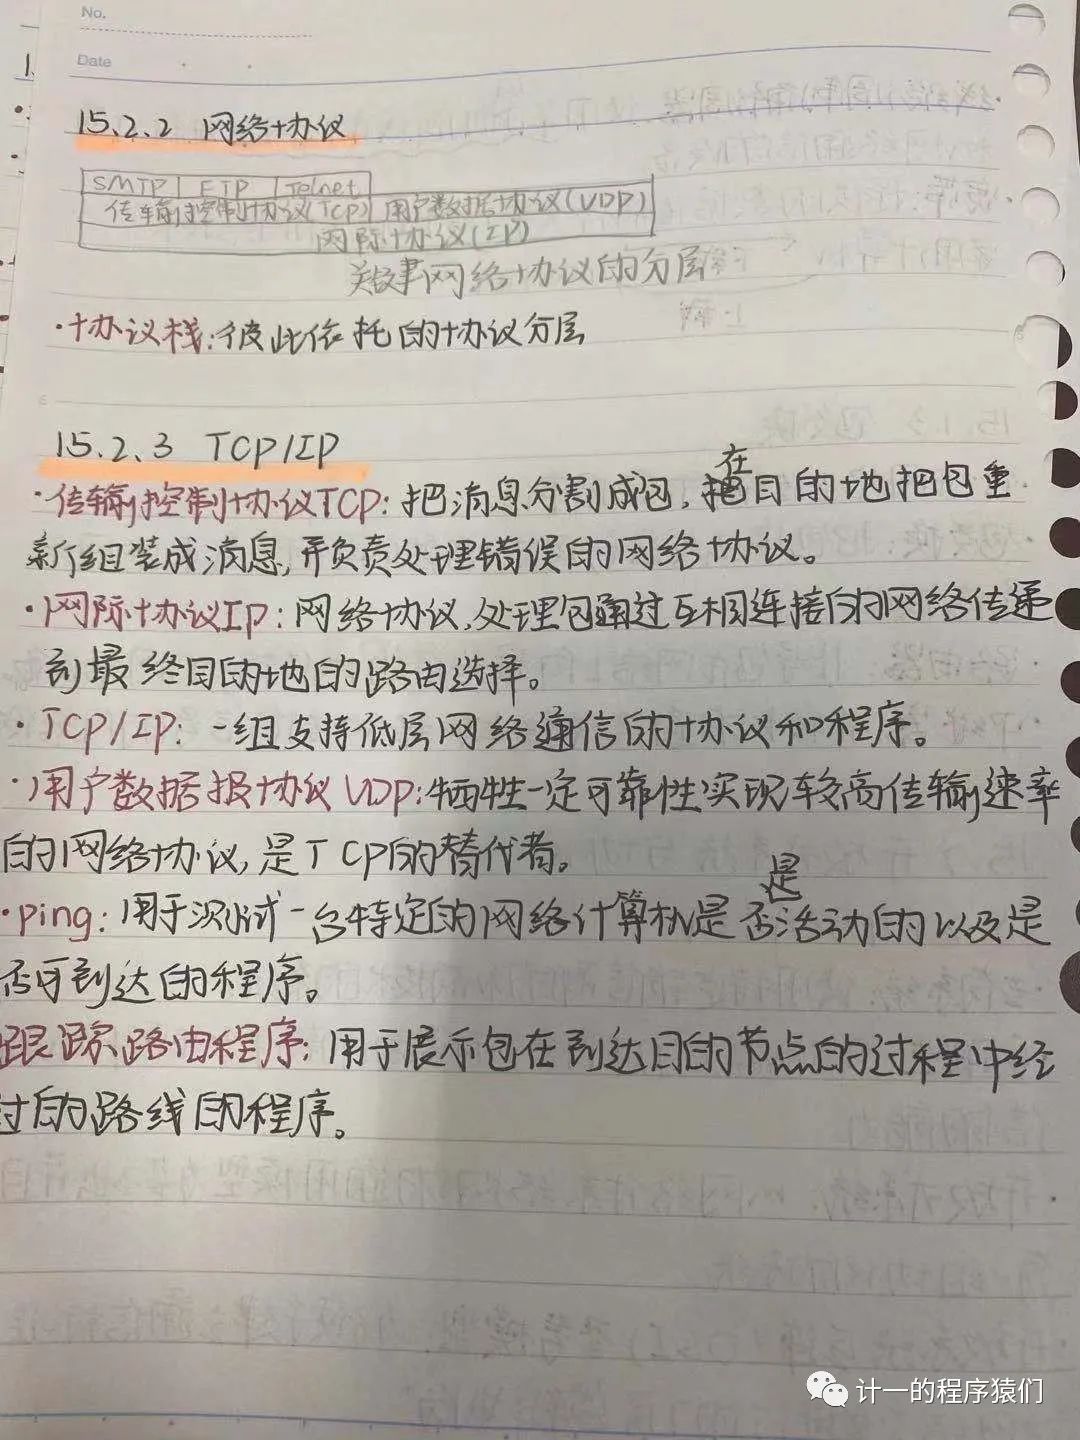 No.
Date
15.2.2 网络协议
SMTP FTP Telnet
传输控制协议(TCP) 用户数据协议(UDP)
网际协议(IP)
关键网络协议的分层
·协议栈:彼此依托的协议分层
15.2.3 TCP/IP
·传输控制协议TCP:把消息分割成包,在目的地把包重
新组装成消息,并负责处理错误的网络协议。
·网际协议IP:网络协议,处理包通过互相连接的网络传递
到最终目的地的路由选择。
·TCP/IP:一组支持低层网络通信的协议和程序。
·用户数据报协议UDP:牺牲一定可靠性实现较高传输速率
的网络协议,是TCP的替代者。
·ping:用于测试一台特定的网络计算机是否是活动的以及是
否可到达的程序。
跟踪路由程序:用于展示包在到达目的节点的过程中经
过的路线的程序。
计一的程序猿们